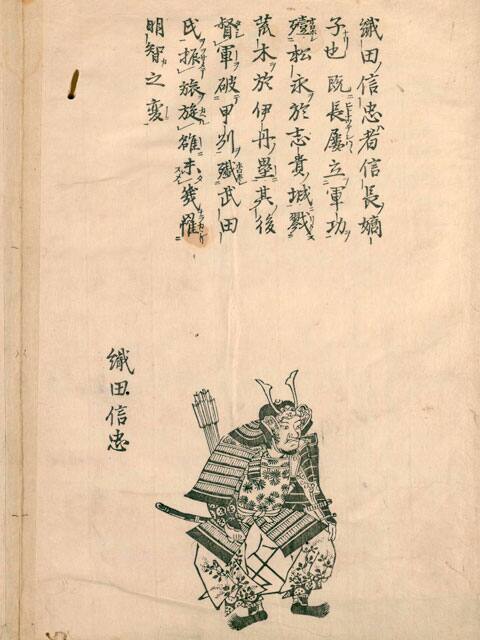 織田信忠者信長嫡
子也既長屢立軍功
殪松永於志貴城戮
荒木於伊丹塁其後
督軍破甲州殲武田
氏振旅旋雖未幾懼
明智之変
織田信忠